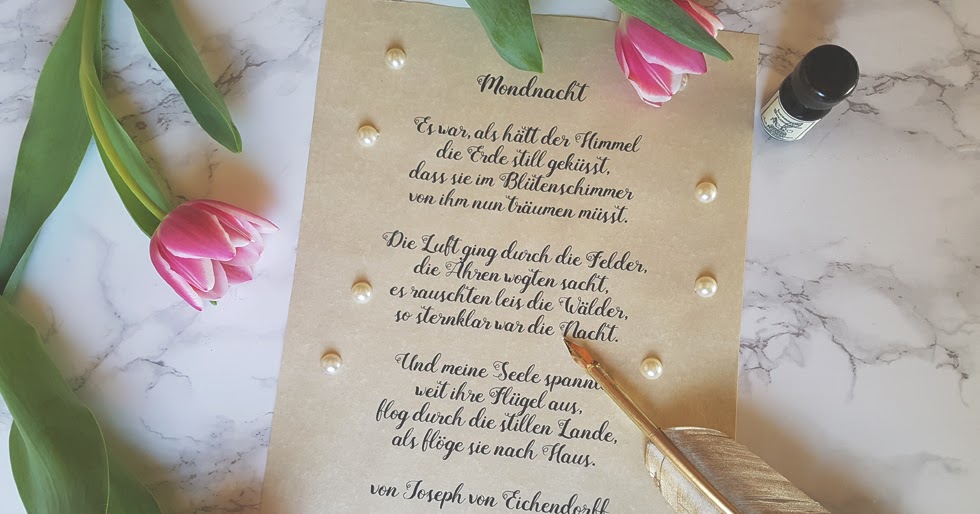 Mondnacht
Es war, als hätt der Himmel
die Erde still geküsst,
dass sie im Blütenschimmer
von ihm nun träumen müsst.
Die Luft ging durch die Felder,
die Ähren wogten sacht,
es rauschten leis die Wälder,
so sternklar war die Nacht.
Und meine Seele spannte
weit ihre Flügel aus,
flog durch die stillen Lande,
als flöge sie nach Haus.
von Joseph von Eichendorff